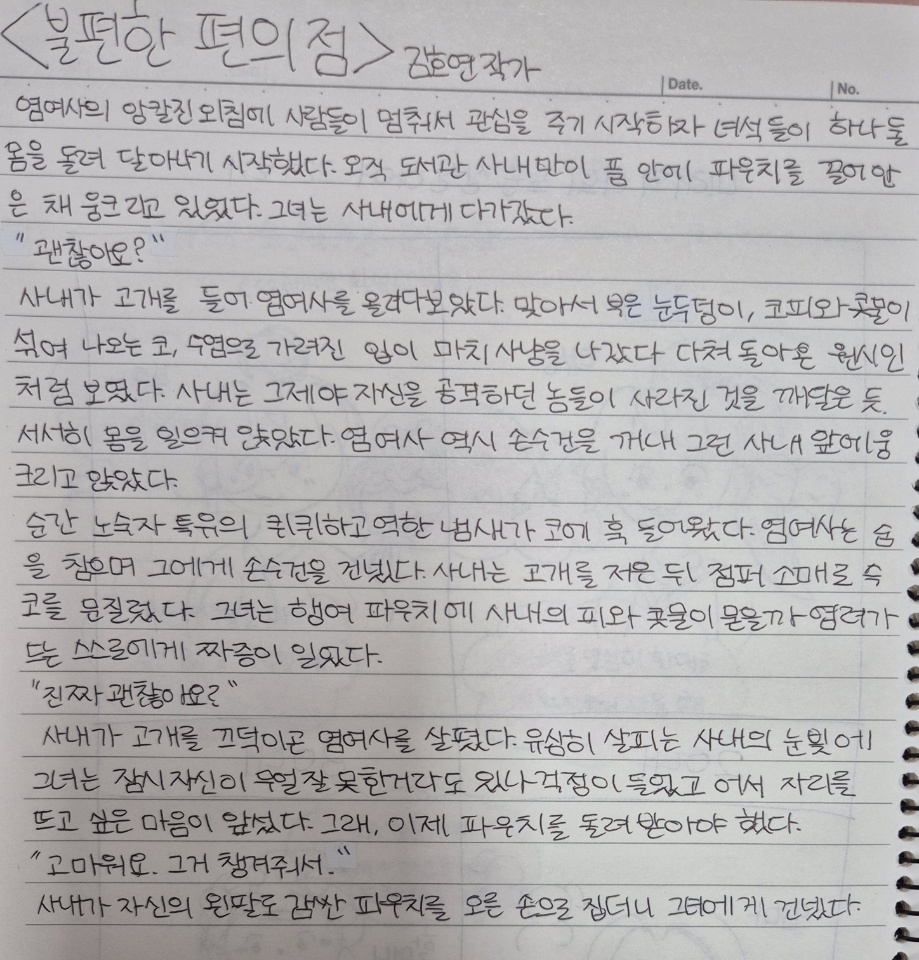 <불편한 편의점> 김호연작가
Date.
No.
염여사의 앙칼진 외침에 사람들이 멈춰서 관심을 주기 시작하자 녀석들이 하나둘
몸을 돌려 달아나기 시작했다. 오직 도서관 사내만이 품 안에 파우치를 끌어안
은 채 웅크리고 있었다. 그녀는 사내에게 다가갔다.
"괜찮아요?"
사내가 고개를 들어 염여사를 올려다보았다. 맞아서 부은 눈두덩이, 코피와 콧물이
섞여 나오는 코, 수염으로 가려진 입이 마치 사냥을 나갔다 다쳐 돌아온 원시인
처럼 보였다. 사내는 그제야 자신을 공격하던 놈들이 사라진 것을 깨달은 듯.
서서히 몸을 일으켜 앉았다. 염여사 역시 손수건을 꺼내 그런 사내 앞에 웅
크리고 앉았다.
순간 노숙자 특유의 퀴퀴하고 역한 냄새가 코에 훅 들어왔다. 염여사는 숨
을 참으며 그에게 손수건을 건넸다. 사내는 고개를 저은 뒤 점퍼 소매로 슥
코를 문질렀다. 그녀는 행여 파우치에 사내의 피와 콧물이 묻을까 염려가
드는 스스로에게 짜증이 일었다.
"진짜 괜찮아요?"
사내가 고개를 끄덕이곤 염여사를 살폈다. 유심히 살피는 사내의 눈빛에
그녀는 잠시 자신이 무얼 잘 못한거라도 있나 걱정이 들었고 어서 자리를
뜨고 싶은 마음이 앞섰다. 그래, 이제 파우치를 돌려 받아야 했다.
"고마워요. 그거 챙겨줘서."
사내가 자신의 왼팔로 감싼 파우치를 오른 손으로 집더니 그녀에게 건넸다.